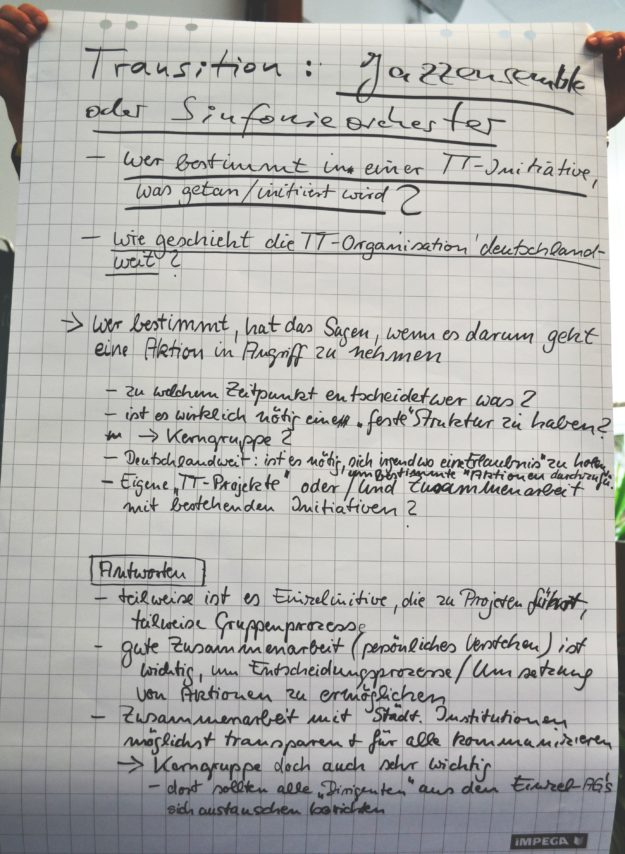 Transition: Jazzensemble
oder Sinfonieorchester
- wer bestimmt in einer TT-Initiative,
was getan/initiiert wird?
- wie geschieht die TT-Organisation deutschland-
weit?
→ wer bestimmt, hat das Sagen, wenn es darum geht
eine Aktion in Angriff zu nehmen
- zu welchem Zeitpunkt entscheidet wer was?
- ist es wirklich nötig eine „feste" Struktur zu haben?
→ Kerngruppe?
- Deutschlandweit: ist es nötig, sich irgendwo eine „Erlaubnis" zu holen,
um bestimmte "Aktionen durchzuf.
- Eigene „TT-Projekte" oder/und Zusammenarbeit
mit bestehenden Initiativen?
Antworten
- teilweise ist es Einzelinitive, die zu Projeten führt,
teilweise Gruppenprozesse
- gute Zusammenarbeit (persönliches Verstehen) ist
wichtig, um Entscheidungsprozesse/Umsetzung
von Aktionen zu ermöglichen
- Zusammenarbeit mit Städt. Institutionen
möglichst transparent für alle kommunizieren
→ Kerngruppe doch auch sehr wichtig
- dort sollten alle „Dirigenten" aus den Einzel-AG's
sich austauschen berichten
IMPEGA